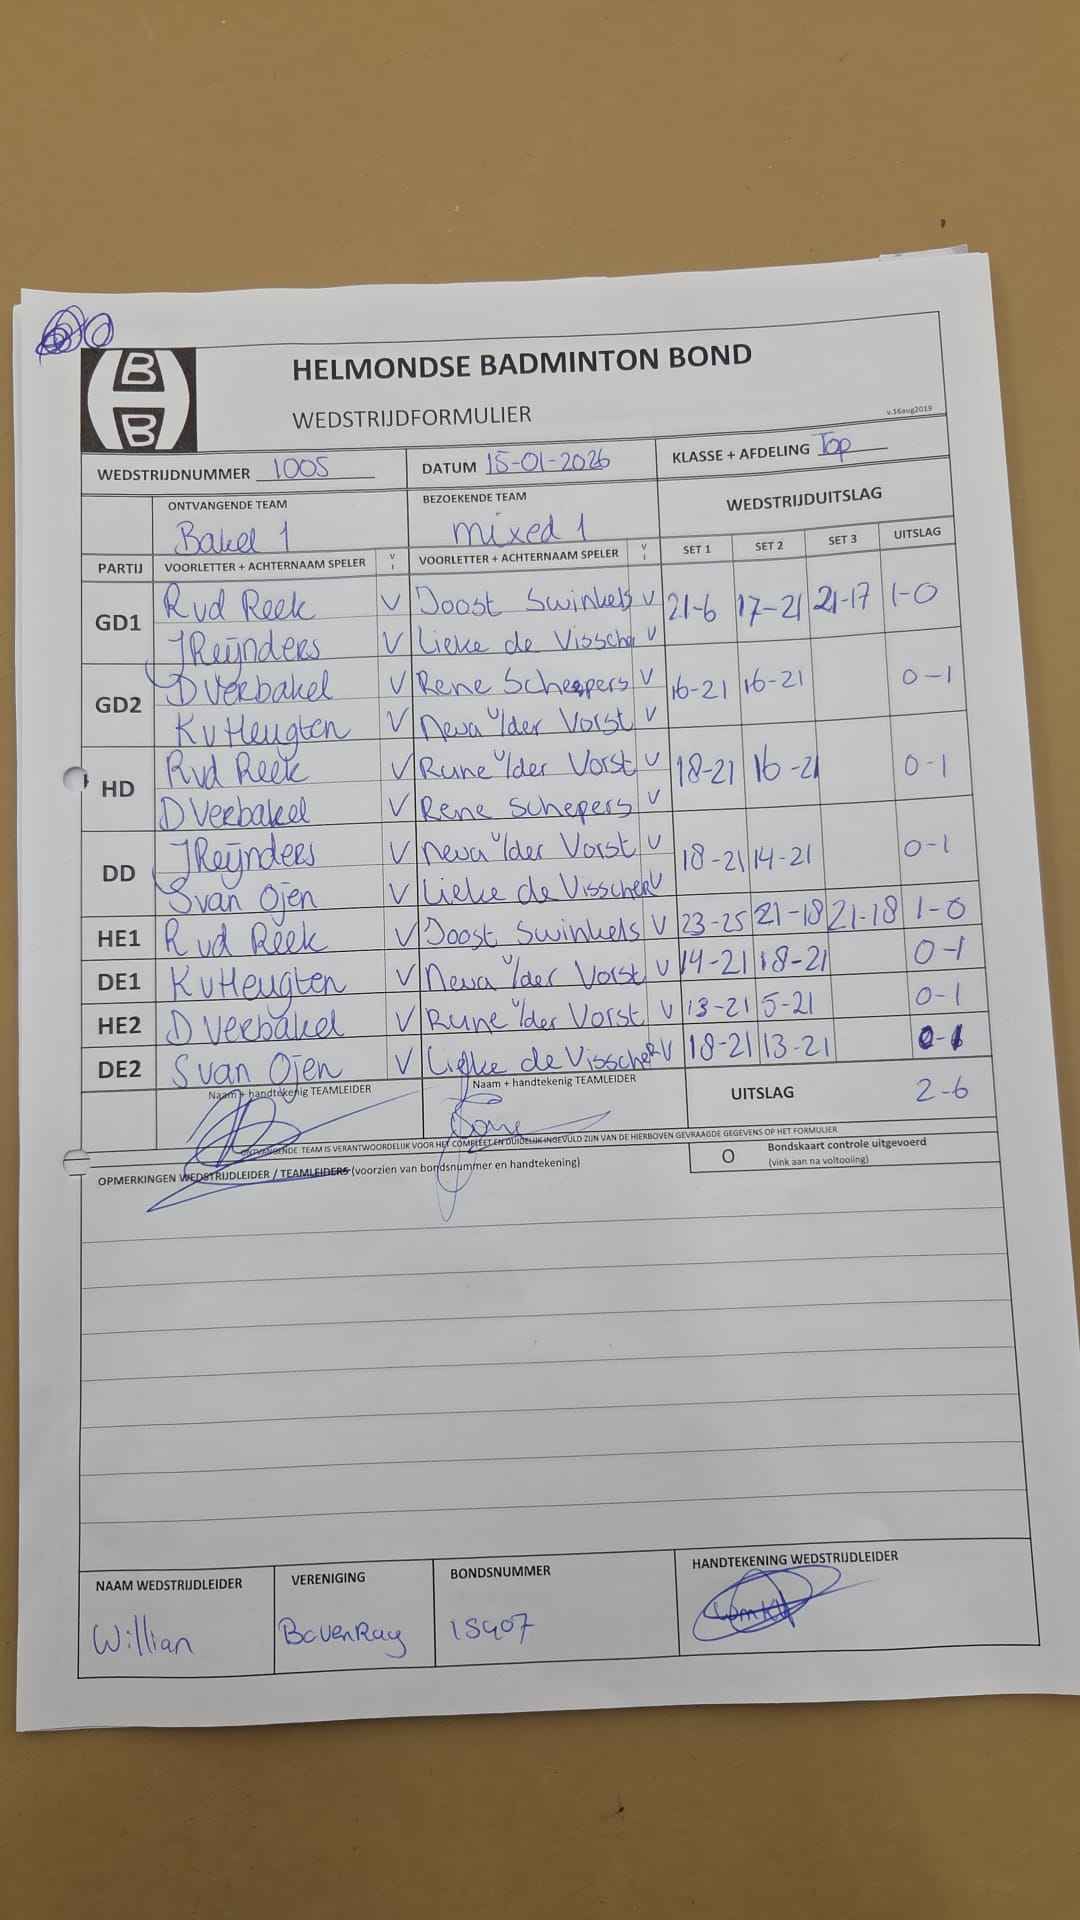 HELMONDSE BADMINTON BOND
WEDSTRIJDFORMULIER
v.16aug2019
B
B
WEDSTRIJDNUMMER 1005 DATUM 15-01-2026 KLASSE + AFDELING Top
ONTVANGENDE TEAM BEZOEKENDE TEAM WEDSTRIJDUITSLAG
Bakel 1 mixed 1
PARTIJ VOORLETTER + ACHTERNAAM SPELER V I VOORLETTER + ACHTERNAAM SPELER V I SET 1 SET 2 SET 3 UITSLAG
GD1 R vd Reek V Joost Swinkels V 21-6 17-21 21-17 1-0
J Reijnders V Lieke de Visscher V
GD2 D Verbakel V Rene Scheepers V 16-21 16-21 0-1
K v Heugten V Neva v/der Vorst V
HD R vd Reek V Rune v/der Vorst V 18-21 16-21 0-1
D Verbakel V Rene Schepers V
DD J Reijnders V Neva v/der Vorst V 18-21 14-21 0-1
S van Ojen V Lieke de Visscher V
HE1 R vd Reek V Joost Swinkels V 23-25 21-18 21-18 1-0
DE1 K v Heugten V Neva v/der Vorst V 14-21 18-21 0-1
HE2 D Verbakel V Rune v/der Vorst V 13-21 5-21 0-1
DE2 S van Ojen V Lieke de Visscher V 18-21 13-21 0-1
Naam + handtekenig TEAMLEIDER Naam + handtekenig TEAMLEIDER UITSLAG 2-6
ONTVANGENDE TEAM IS VERANTWOORDELIJK VOOR HET COMPLEET EN DUIDELIJK INGEVULD ZIJN VAN DE HIERBOVEN GEVRAAGDE GEGEVENS OP HET FORMULIER
O Bondskaart controle uitgevoerd
(vink aan na voltooiing)
OPMERKINGEN WEDSTRIJDLEIDER / TEAMLEIDERS (voorzien van bondsnummer en handtekening)
NAAM WEDSTRIJDLEIDER VERENIGING BONDSNUMMER HANDTEKENING WEDSTRIJDLEIDER
Willian BavenRay 15407